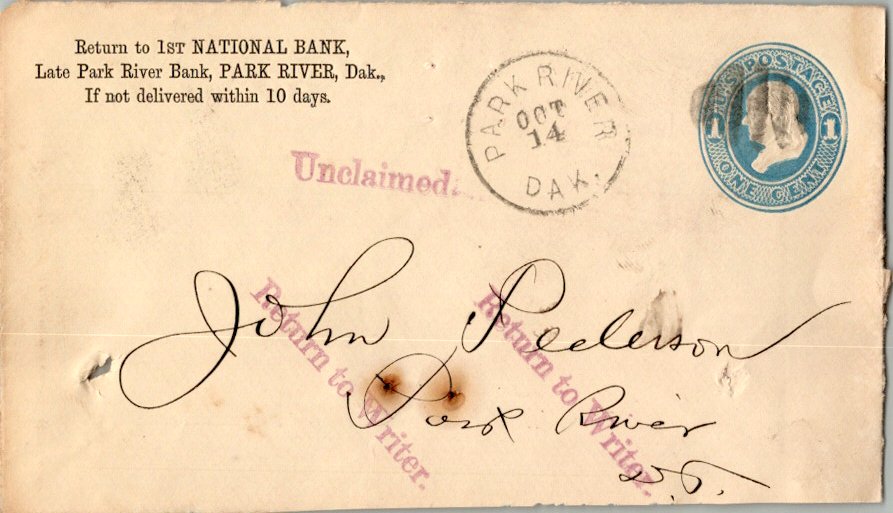 Return to 1ST NATIONAL BANK,
Late Park River Bank, PARK RIVER, Dak.,
If not delivered within 10 days.
PARK RIVER
OCT
14
DAK.
U.S. POSTAGE
1 1
ONE CENT
Unclaimed.
John Pederson
Park River
D.T.
Return to Writer.
Return to Writer.